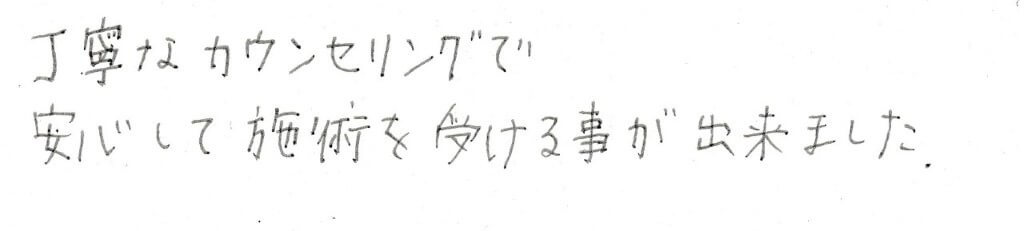 丁寧なカウンセリングで
安心して施術を受ける事が出来ました.